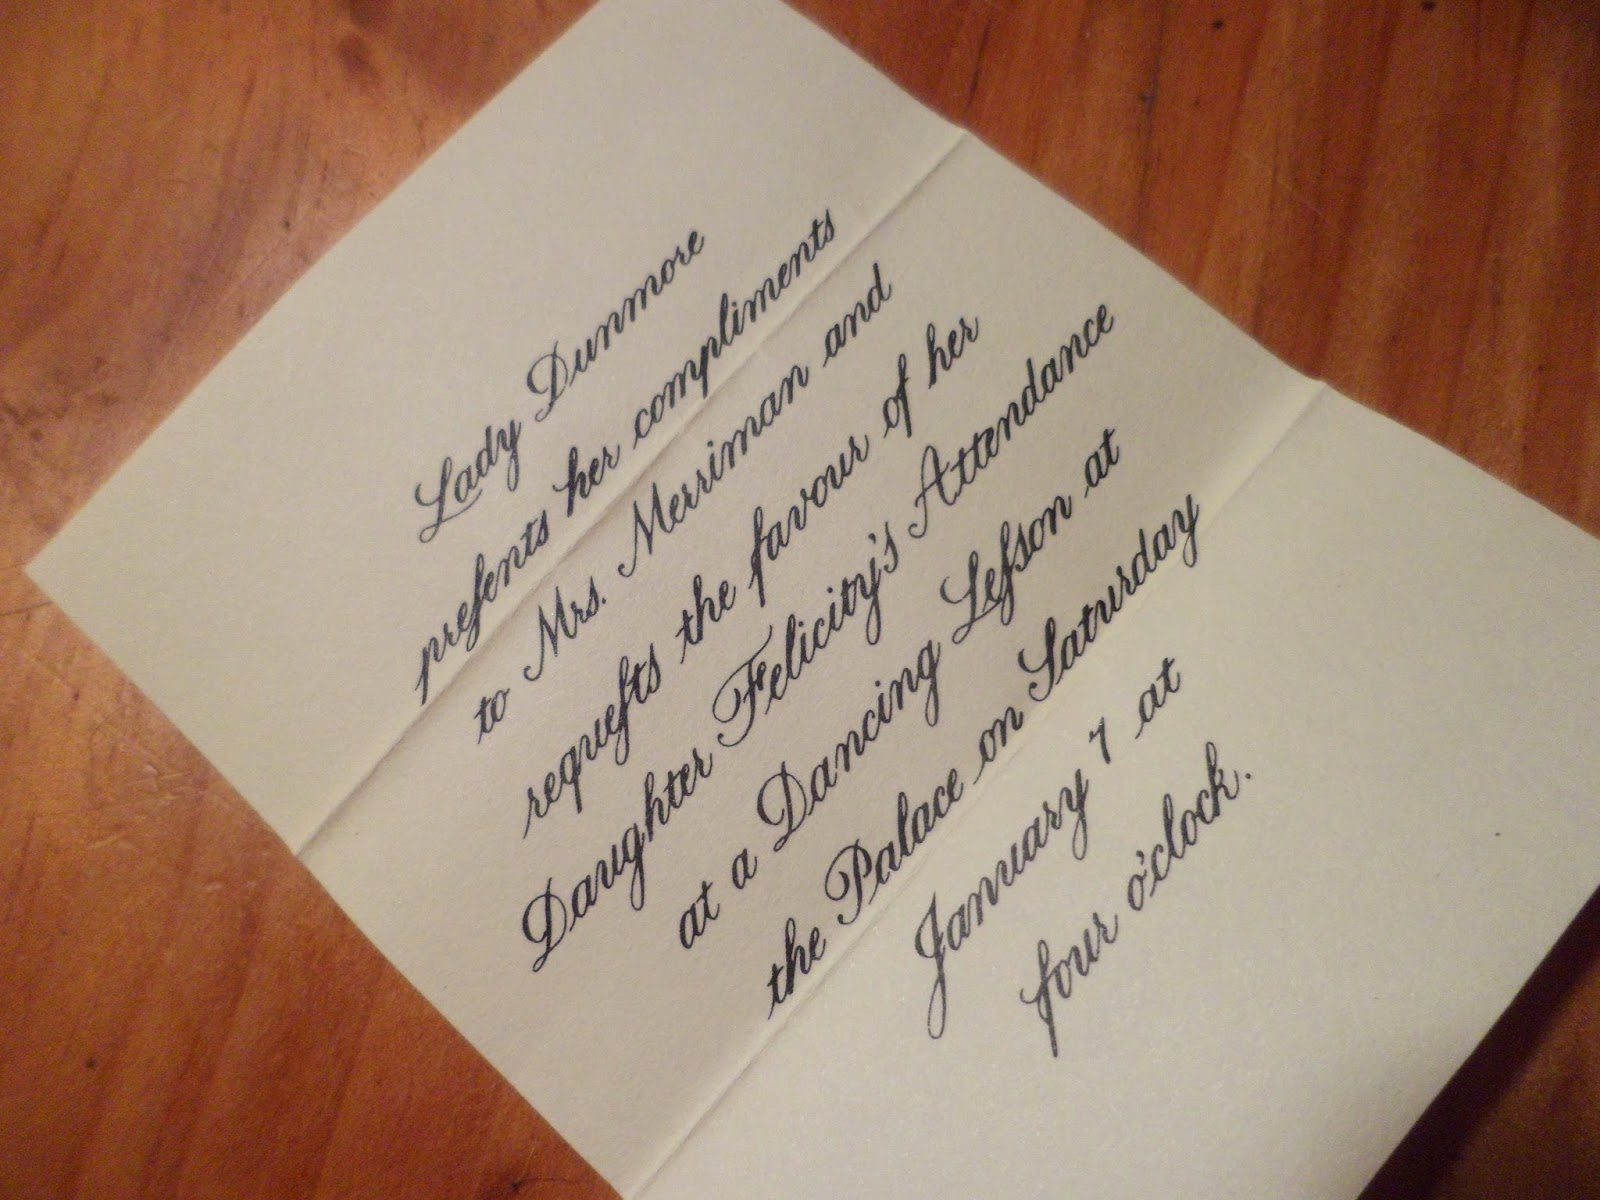 Lady Dunmore
preſents her compliments
to Mrs. Merriman and
requeſts the favour of her
Daughter Felicity's Attendance
at a Dancing Leſson at
the Palace on Saturday
January 7 at
four o'clock.